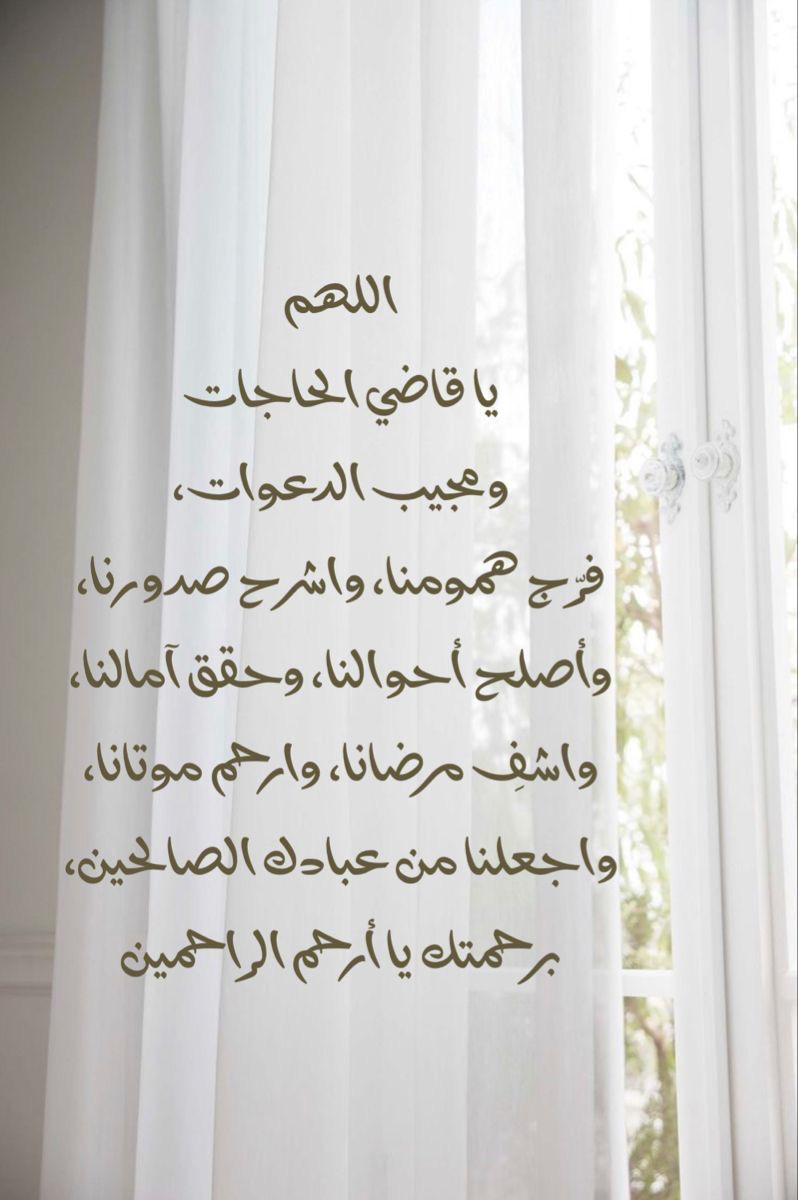 اللهم
يا قاضي الحاجات
ومجيب الدعوات،
فرّج همومنا، واشرح صدورنا،
وأصلح أحوالنا، وحقق آمالنا،
واشفِ مرضانا، وارحم موتانا،
واجعلنا من عبادك الصالحين،
برحمتك يا أرحم الراحمين